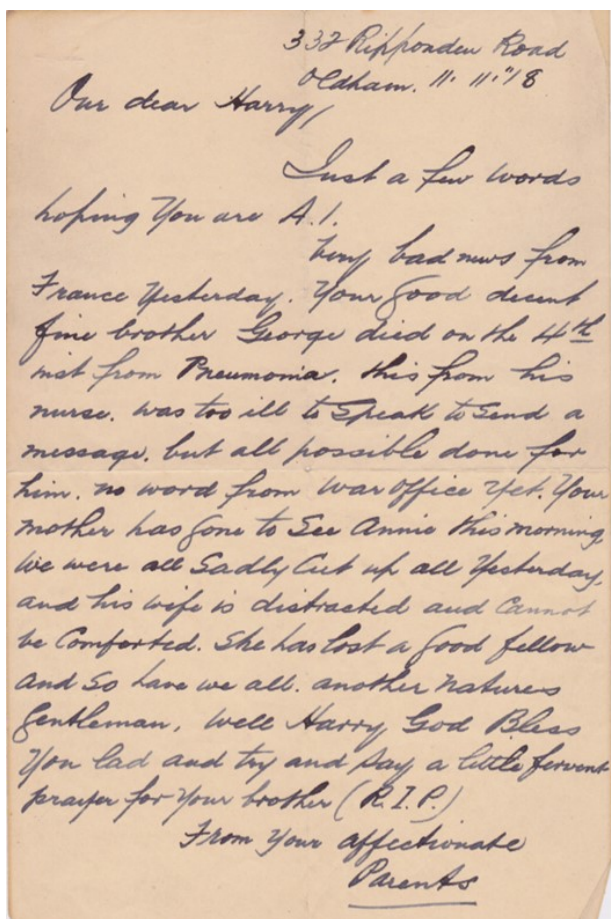 332 Ripponden Road
Oldham. 11. 11."18
Our dear Harry,
Just a few words
hoping You are A.1.
Very bad news from
France Yesterday. Your good decent
fine brother George died on the 4th
inst from Pneumonia. this from his
nurse. was too ill to Speak to Send a
message. but all possible done for
him. no word from War Office Yet. Your
mother has gone to See Annie this morning
We were all Sadly Cut up all Yesterday,
and his wife is distracted and Cannot
be Comforted. She has lost a good fellow
and So have we all. another natures
gentleman. Well Harry God Bless
You lad and try and Say a little fervent
prayer for Your brother (R.I.P.)
From Your affectionate
Parents